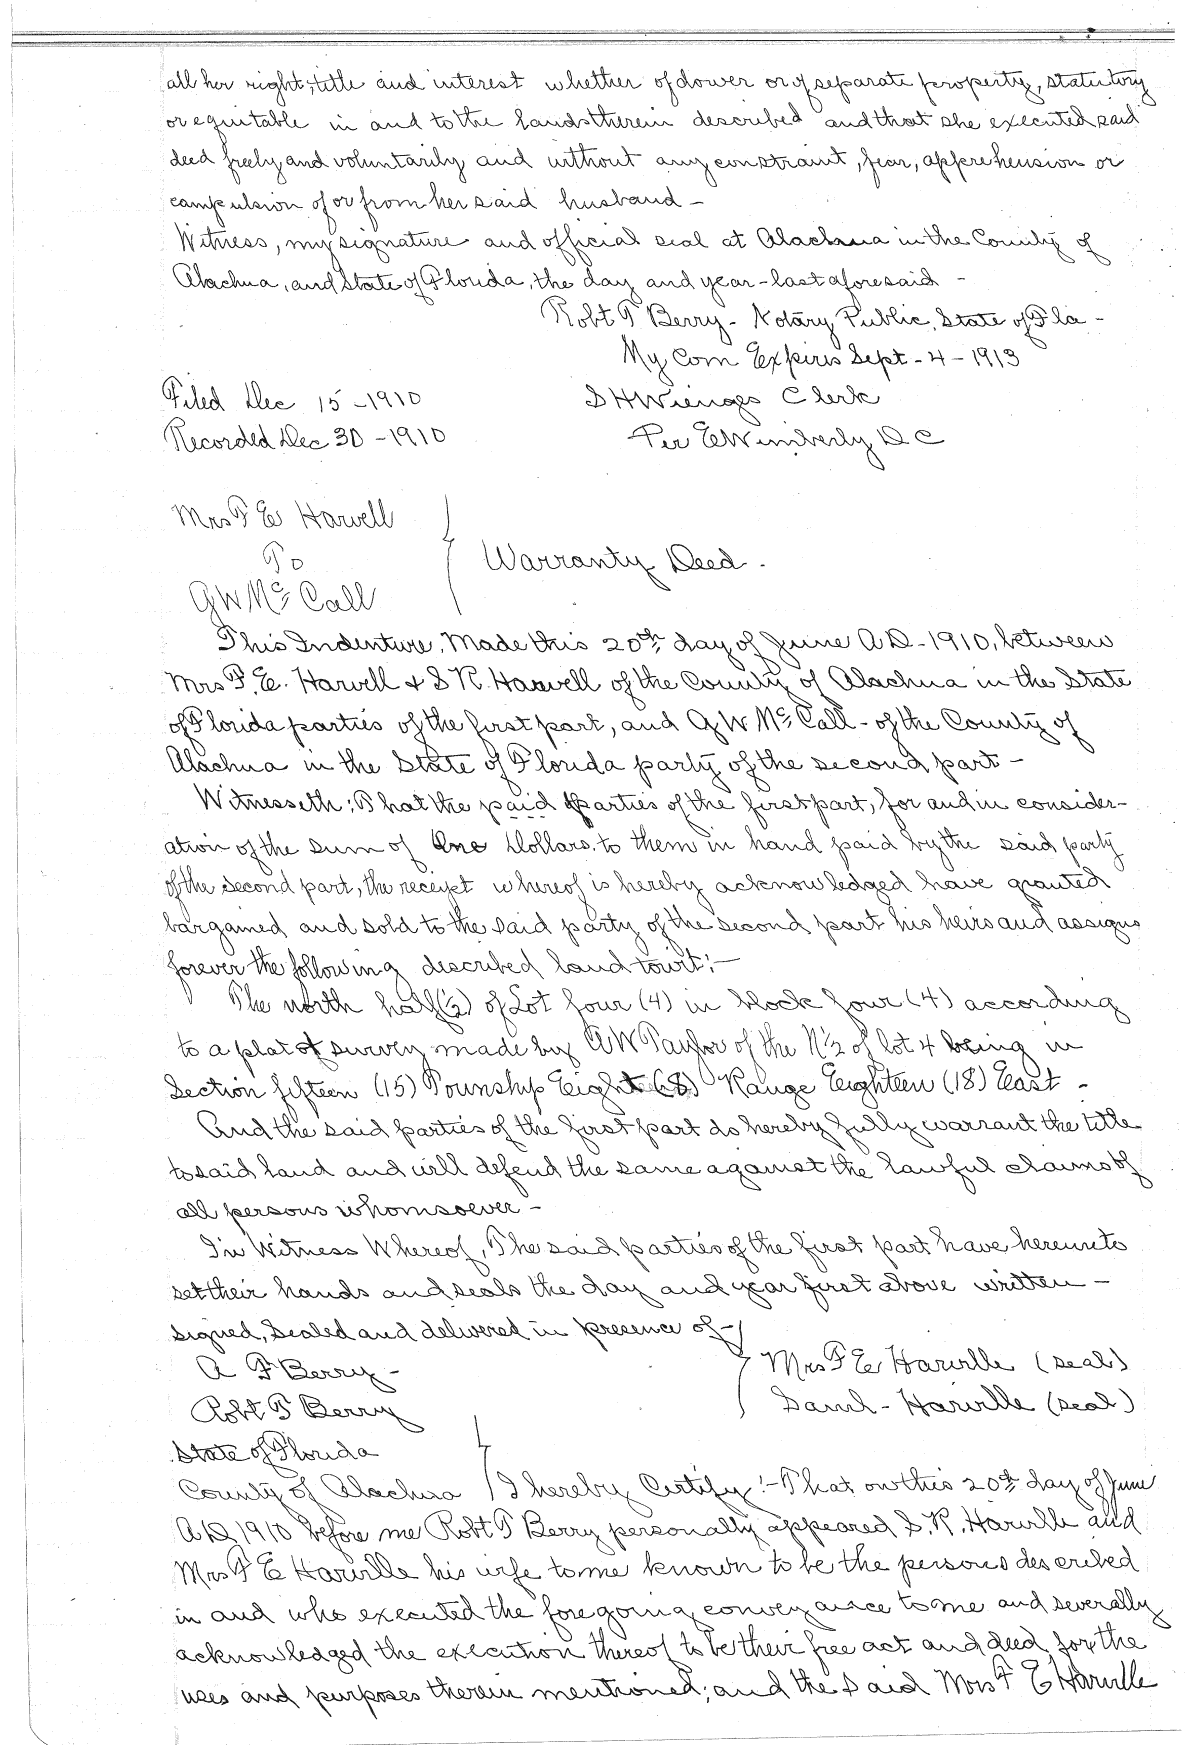 all her right, title and interest whether of dower or of separate property, statutory
or equitable in and to the lands therein described and that she executed said
deed freely and voluntarily and without any constraint, fear, apprehension or
compulsion of or from her said husband -
Witness, my signature and official seal at Alachua in the County of
Alachua, and State of Florida, the day and year - last aforesaid -
Robt T Berry - Notary Public, State of Fla -
My Com Expires Sept - 4 - 1913
Filed Dec 15 - 1910 S H Wienges Clerk
Recorded Dec 30 - 1910 Per E Wimberly D C
Mrs F E Harvell
To
Warranty Deed.
G W Mc Call
This Indenture, Made this 20th day of June A.D - 1910, between
Mrs F. E. Harvell & S R. Harvell of the County of Alachua in the State
of Florida parties of the first part, and G W Mc Call - of the County of
Alachua in the State of Florida party of the second part -
Witnesseth; That the said parties of the first part, for and in consider-
ation of the sum of One Dollars, to them in hand paid by the said party
of the second part, the receipt whereof is hereby acknowledged have granted
bargained and sold to the said party of the second part his heirs and assigns
forever the following described land towit; -
The north half (½) of Lot four (4) in block four (4) according
to a plat of survey made by A W Taylor of the N ½ of lot 4 being in
Section fifteen (15) Township Eight (8) Range Eighteen (18) East -
And the said parties of the first part do hereby fully warrant the title
to said land and will defend the same against the lawful claims of
all persons whomsoever -
In Witness Whereof, The said parties of the first part have hereunto
set their hands and seals the day and year first above written -
signed, Sealed and delivered in presence of -
A F Berry - Mrs F E Harville (seal)
Robt T Berry Saml - Harville (seal)
State of Florida
County of Alachua I hereby Certify :- That on this 20th day of June
A.D. 1910 before me Robt T Berry personally appeared S. R. Harville and
Mrs F E Harville his wife to me known to be the persons described
in and who executed the foregoing conveyance to me and severally
acknowledged the execution thereof to be their free act and deed for the
uses and purposes therein mentioned; and the said Mrs F E Harville